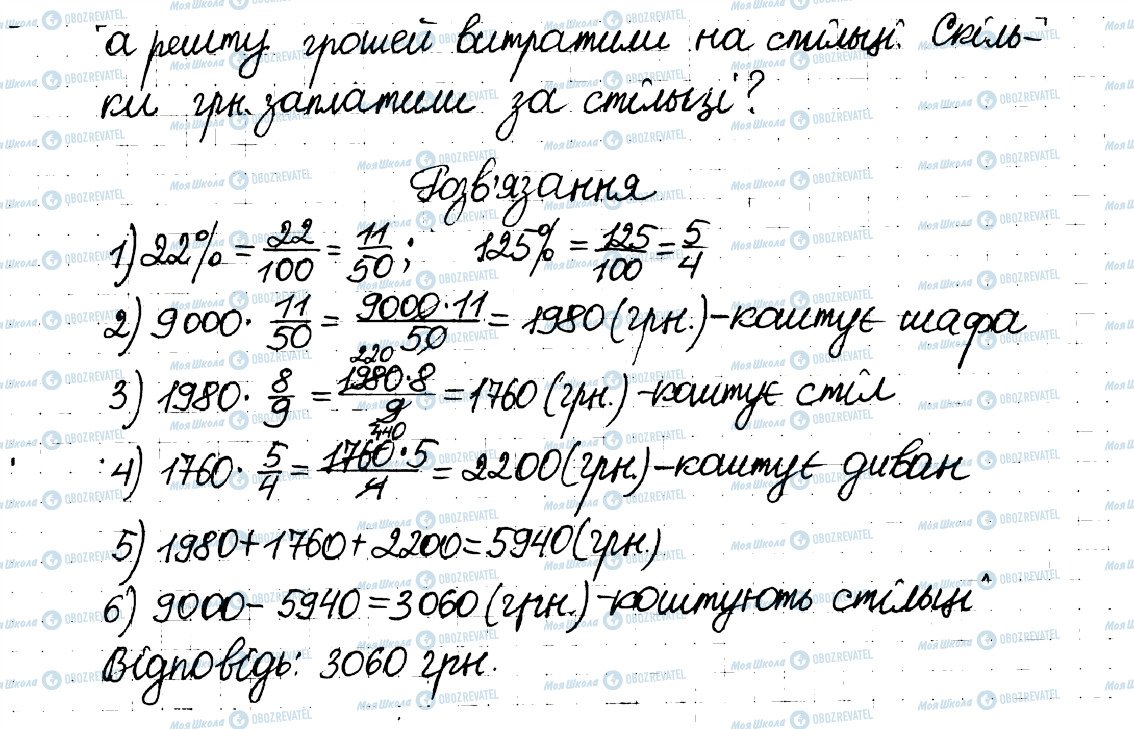 а решту грошей витратили на стільці. Скіль-
ки грн. заплатили за стільці?
Розв'язання
1) 22% = 22/100 = 11/50; 125% = 125/100 = 5/4
2) 9000 · 11/50 = 9000·11/50 = 1980 (грн.) - коштує шафа
3) 1980 · 8/9 = 1980·8/9 = 1760 (грн.) - коштує стіл
4) 1760 · 5/4 = 1760·5/4 = 2200 (грн.) - коштує диван
5) 1980 + 1760 + 2200 = 5940 (грн.)
6) 9000 - 5940 = 3060 (грн.) - коштують стільці
Відповідь: 3060 грн.